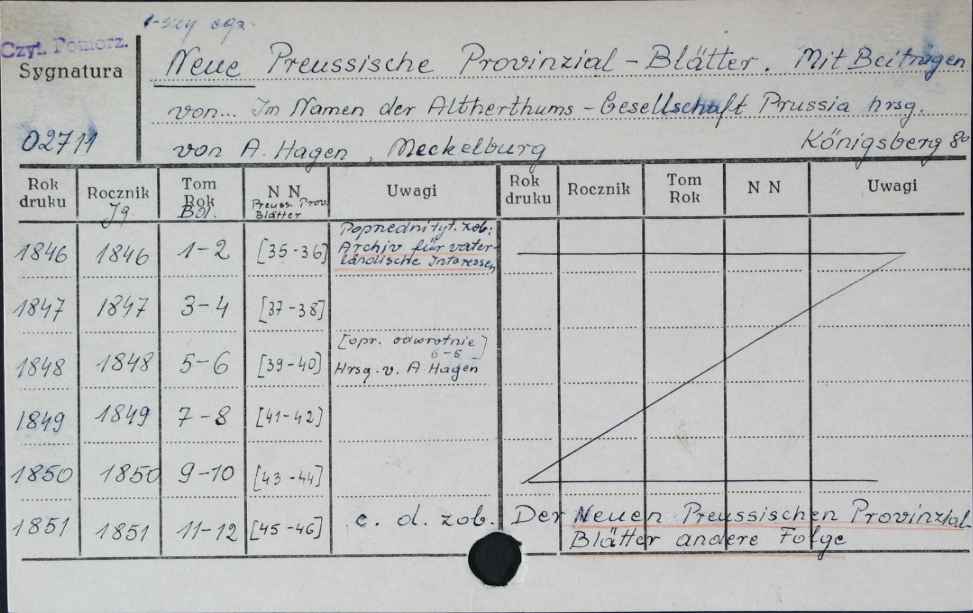 1-szy egz.
Czyt. Pomorz.
Sygnatura
02711
Neue Preussische Provinzial-Blätter. Mit Beiträgen
von... Im Namen der Altherthums-Gesellschaft Prussia hrsg.
von A. Hagen, Meckelburg Königsberg 8º
Rok druku Rocznik Jg Tom Rok Bd. N N Preuss. Prov. Blätter Uwagi Rok druku Rocznik Tom Rok N N Uwagi
1846 1846 1-2 [35-36] Poprzedni tyt. zob:
Archiv für vater-
ländische Interessen
1847 1847 3-4 [37-38]
1848 1848 5-6 [39-40] [opr. odwrotnie]
6-5
Hrsg. v. A Hagen
1849 1849 7-8 [41-42]
1850 1850 9-10 [43-44]
1851 1851 11-12 [45-46] c. d. zob. Der Neuen Preussischen Provinzial
Blätter andere Folge